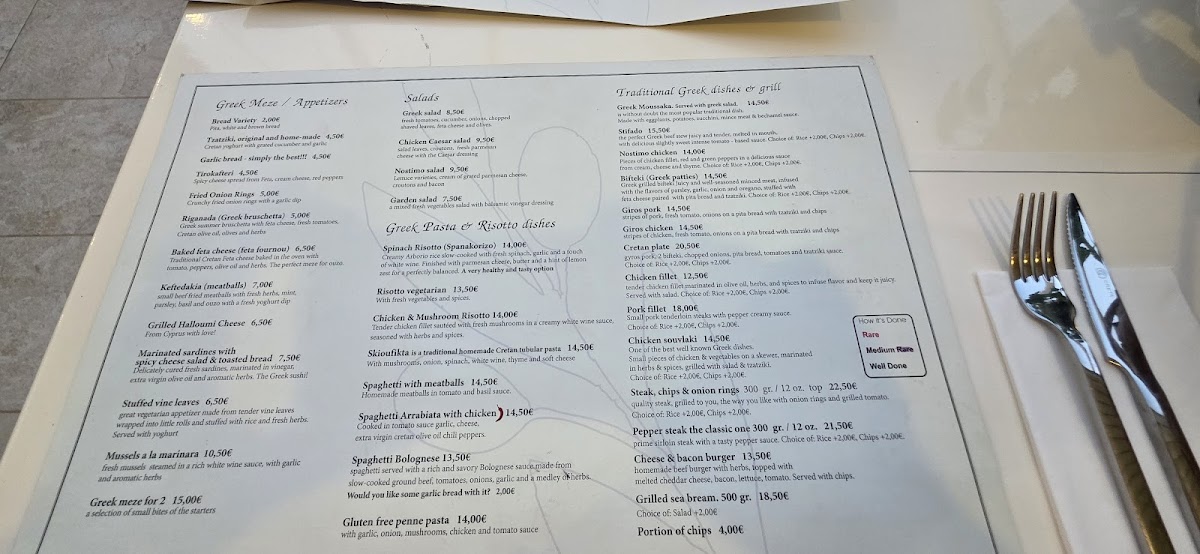 Greek Meze / Appetizers
Bread Variety 2,00€
Pita, white and brown bread
Tzatziki, original and home-made 4,50€
Cretan yoghurt with grated cucumber and garlic
Garlic bread - simply the best!!! 4,50€
Tirokafteri 4,50€
Spicy cheese spread from Feta, cream cheese, red peppers
Fried Onion Rings 5,00€
Crunchy fried onion rings with a garlic dip
Riganada (Greek bruschetta) 5,00€
Greek summer bruschetta with feta cheese, fresh tomatoes,
Cretan olive oil, olives and herbs
Baked feta cheese (feta fournou) 6,50€
Traditional Cretan Feta cheese baked in the oven with
tomato, peppers, olive oil and herbs. The perfect meze for ouzo.
Keftedakia (meatballs) 7,00€
small beef fried meatballs with fresh herbs, mint,
parsley, basil and ouzo with a fresh yoghurt dip
Grilled Halloumi Cheese 6,50€
From Cyprus with love!
Marinated sardines with
spicy cheese salad & toasted bread 7,50€
Delicately cured fresh sardines, marinated in vinegar,
extra virgin olive oil and aromatic herbs. The Greek sushi!
Stuffed vine leaves 6,50€
great vegetarian appetizer made from tender vine leaves
wrapped into little rolls and stuffed with rice and fresh herbs.
Served with yoghurt
Mussels a la marinara 10,50€
fresh mussels steamed in a rich white wine sauce, with garlic
and aromatic herbs
Greek meze for 2 15,00€
a selection of small bites of the starters
Salads
Greek salad 8,50€
fresh tomatoes, cucumber, onions, chopped
shaved leaves, feta cheese and olives.
Chicken Caesar salad 9,50€
salad leaves, croutons, fresh parmesan
cheese with the Caesar dressing
Nostimo salad 9,50€
Lettuce varieties, cream of grated parmesan cheese,
croutons and bacon
Garden salad 7,50€
a mixed fresh vegetables salad with balsamic vinegar dressing
Greek Pasta & Risotto dishes
Spinach Risotto (Spanakorizo) 14,00€
Creamy Arborio rice slow-cooked with fresh spinach, garlic and a touch
of white wine. Finished with parmesan cheese, butter and a hint of lemon
zest for a perfectly balanced. A very healthy and tasty option
Risotto vegetarian 13,50€
With fresh vegetables and spices.
Chicken & Mushroom Risotto 14,00€
Tender chicken fillet sauteed with fresh mushrooms in a creamy white wine sauce,
seasoned with herbs and spices.
Skioufikta is a traditional homemade Cretan tubular pasta 14,50€
With mushrooms, onion, spinach, white wine, thyme and soft cheese
Spaghetti with meatballs 14,50€
Homemade meatballs in tomato and basil sauce.
Spaghetti Arrabiata with chicken 14,50€
Cooked in tomato sauce garlic, cheese,
extra virgin cretan olive oil chili peppers.
Spaghetti Bolognese 13,50€
spaghetti served with a rich and savory Bolognese sauce,made from
slow-cooked ground beef, tomatoes, onions, garlic and a medley of herbs.
Would you like some garlic bread with it? 2,00€
Gluten free penne pasta 14,00€
with garlic, onion, mushrooms, chicken and tomato sauce
Traditional Greek dishes & grill
Greek Moussaka. Served with greek salad. 14,50€
is without doubt the most popular traditional dish.
Made with eggplants, potatoes, zucchini, mince meat & bechamel sauce.
Stifado 15,50€
the perfect Greek beef stew juicy and tender, melted in mouth,
with delicious slightly sweet intense tomato - based sauce. Choice of: Rice +2,00€, Chips +2,00€.
Nostimo chicken 14,00€
Pieces of chicken fillet, red and green peppers in a delicious sauce
from cream, cheese and thyme. Choice of: Rice +2,00€, Chips +2,00€.
Bifteki (Greek patties) 14,50€
Greek grilled bifteki juicy and well-seasoned minced meat, infused
with the flavors of parsley, garlic, onion and oregano, stuffed with
feta cheese paired with pita bread and tzatziki. Choice of: Rice +2,00€, Chips +2,00€.
Giros pork 14,50€
stripes of pork, fresh tomato, onions on a pita bread with tzatziki and chips
Giros chicken 14,50€
stripes of chicken, fresh tomato, onions on a pita bread with tzatziki and chips
Cretan plate 20,50€
gyros pork, 2 bifteki, chopped onions, pita bread, tomatoes and tzatziki sauce.
Choice of: Rice +2,00€, Chips +2,00€.
Chicken fillet 12,50€
tender chicken fillet marinated in olive oil, herbs, and spices to infuse flavor and keep it juicy.
Served with salad. Choice of: Rice +2,00€, Chips +2,00€.
Pork fillet 18,00€
Small pork tenderloin steaks with pepper creamy sauce.
Choice of: Rice +2,00€, Chips +2,00€.
Chicken souvlaki 14,50€
One of the best well known Greek dishes.
Small pieces of chicken & vegetables on a skewer, marinated
in herbs & spices, grilled with salad & tzatziki.
Choice of: Rice +2,00€, Chips +2,00€.
Steak, chips & onion rings 300 gr. / 12 oz. top 22,50€
quality steak, grilled to you, the way you like with onion rings and grilled tomato.
Choice of: Rice +2,00€, Chips +2,00€.
Pepper steak the classic one 300 gr. / 12 oz. 21,50€
prime sirloin steak with a tasty pepper sauce. Choice of: Rice +2,00€, Chips +2,00€.
Cheese & bacon burger 13,50€
homemade beef burger with herbs, topped with
melted cheddar cheese, bacon, lettuce, tomato. Served with chips.
Grilled sea bream. 500 gr. 18,50€
Choice of: Salad +2,00€
Portion of chips 4,00€
How It's Done
Rare
Medium Rare
Well Done